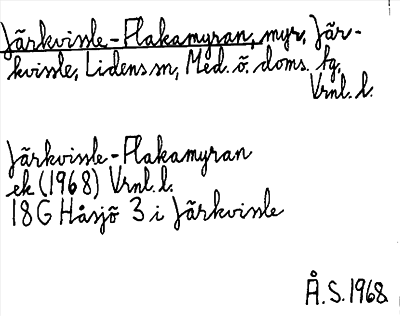 Järkvissle-Flakamyran, myr, Jär-
kvissle, Lidens sn, Med. ö. doms. fg,
Vrnl. l.
Järkvissle-Flakamyran
ek (1968) Vrnl. l.
18G Håsjö 3 i Järkvissle
Å. S. 1968